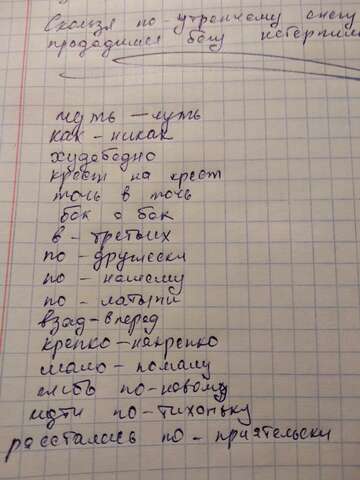 Скользя по-утреннему снегу
предадимся бегу нетерпели
чуть – чуть
как – никак
худобедно
крест на крест
точь в точь
бок о бок
в – третьих
по – дружески
по – нашему
по – латыни
взад – вперед
крепко – накрепко
мало – помалу
по-новому
идти по – тихоньку
расстались по – приятельски